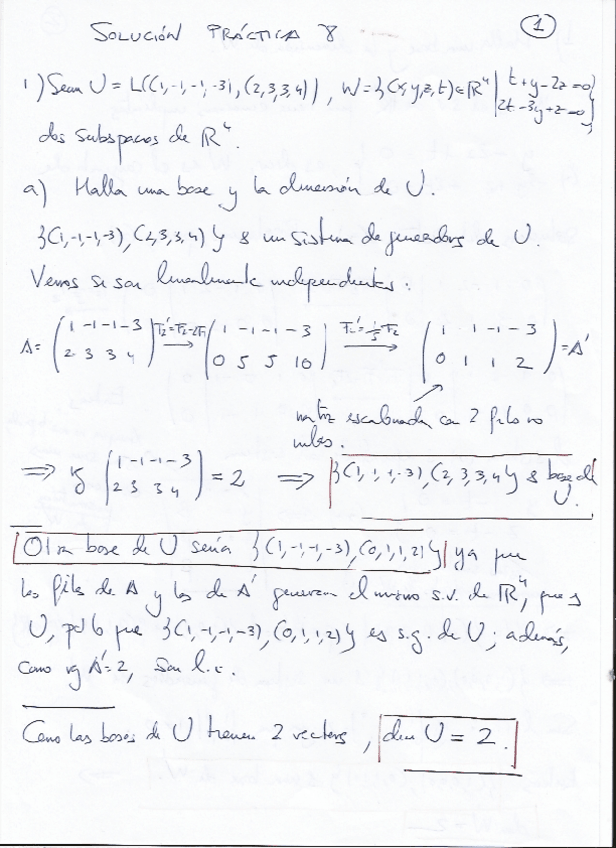 SOLUCIÓN PRÁCTICA 8
1
1) Sean U = L((1,-1,-1,-3),(2,3,3,4)), W = {(x,y,z,t)∈ℝ⁴ | t+y-2z=0 2t-3y+z=0}
dos subespacios de ℝ⁴.
a) Halla una base y la dimensión de U.
{(1,-1,-1,-3),(2,3,3,4)} es un sistema de generadores de U.
Vemos si son linealmente independientes:
A = (1 -1 -1 -3 / 2 3 3 4) F₂'=F₂-2F₁ → (1 -1 -1 -3 / 0 5 5 10) F₂'=1/5 F₂ → (1 1 -1 -3 / 0 1 1 2) = A'
matriz escalonada con 2 filas no
nulas.
⟹ rg (1 -1 -1 -3 / 2 3 3 4) = 2 ⟹ {(1,1,1,-3),(2,3,3,4)} es base de
U.
Otra base de U sería {(1,-1,-1,-3),(0,1,1,2)} ya que
las filas de A y las de A' generan el mismo s.v. de ℝ⁴, que es
U, por lo que {(1,-1,-1,-3),(0,1,1,2)} es s.g. de U; además,
como rg A'=2, son l.i.
Como las bases de U tienen 2 vectores, dim U = 2.